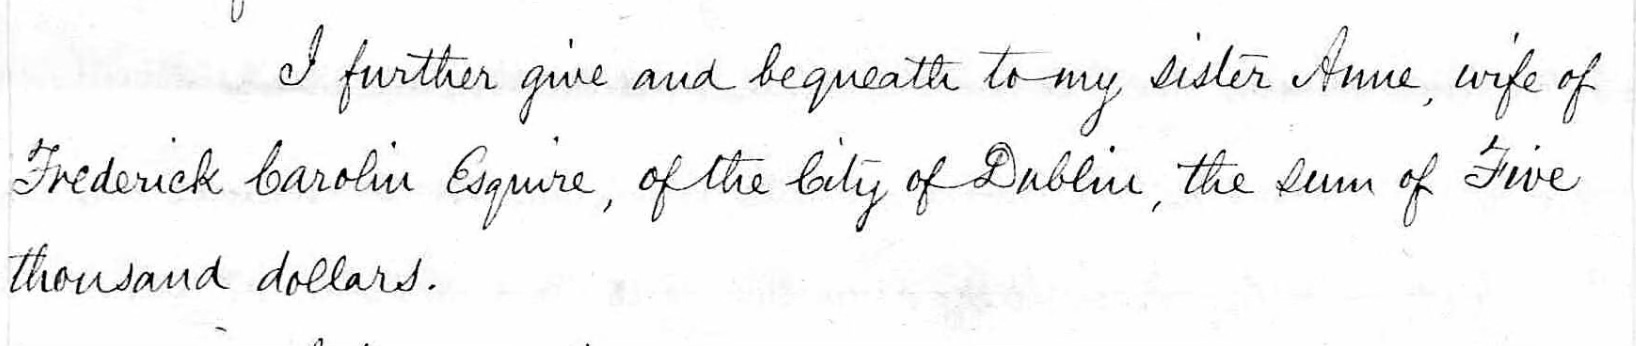 I further give and bequeath to my sister Anne, wife of
Frederick Carolin Esquire, of the City of Dublin, the sum of Five
thousand dollars.